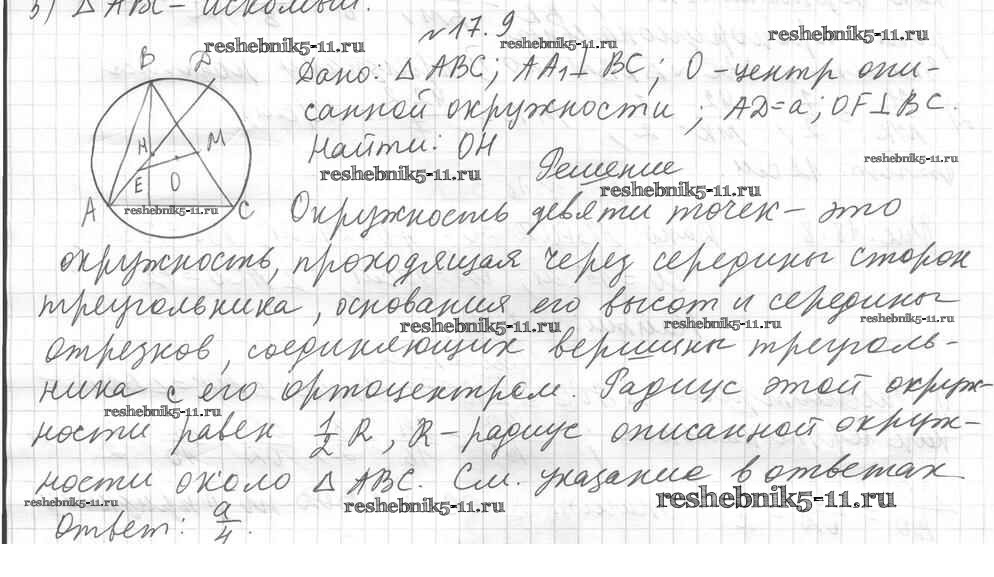 5) △ ABC – искомый.
№17.9
reshebnik5-11.ru
reshebnik5-11.ru
reshebnik5-11.ru
Дано: △ ABC; AA₁⊥BC; O – центр опи-
санной окружности; AD=a; OF⊥BC.
Найти: OH
reshebnik5-11.ru
reshebnik5-11.ru
Решение
reshebnik5-11.ru
B
D
H
M
E
O
A
C
reshebnik5-11.ru
Окружность девяти точек – это
окружность, проходящая через середины сторон
треугольника, основания его высот и середины
reshebnik5-11.ru
reshebnik5-11.ru
reshebnik5-11.ru
отрезков, соединяющих вершины треуголь-
ника с его ортоцентром. Радиус этой окруж-
reshebnik5-11.ru
ности равен 1/2 R, R – радиус описанной окруж-
ности около △ ABC. См. указание в ответах
reshebnik5-11.ru
reshebnik5-11.ru
reshebnik5-11.ru
Ответ: a/4.